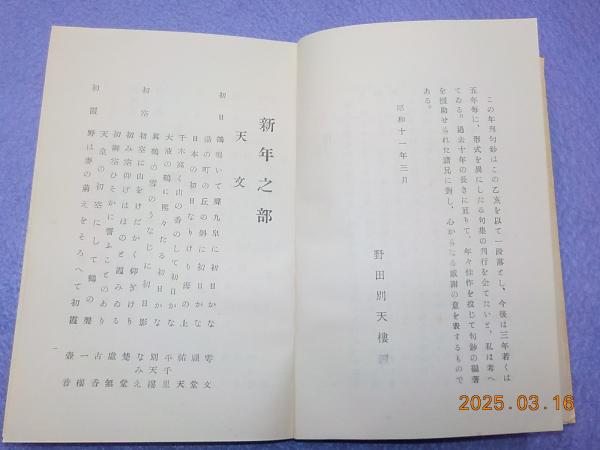 この年刊句鈔はこの乙亥を以て一段落とし、今後は三年若くは
五年毎に、形式を異にしたる句集の刊行を企てたいと、私は考へ
てゐる。過去十年の長きに亙りて、年々佳作を投じて句鈔の編著
を援助せられた諸兄に對し、心からなる感謝の意を表するもので
ある。
昭和十一年三月
野田別天樓
新年之部
天文
初日 鶴鳴いて聲九皐に初日かな 雫文
湯の町の丘の斜に初日かな 頑堂
日本の初日なりけり海の上 祐天
千木高く山の香のして初日かな 不千里
大澤の鶴に照々たる初日かな 別天樓
眞鶴の雪のうなじに初日影 なみえ
初空 初空に山をけだかく仰ぎけり 楚堂
初み空仰げばほのと霞みゐる
初御空ひそかに誓ふことのあり 古香
天皇の初空にして鶴の聲 一樓
初霞 野は麥の萠えをそろへて初霞 壺音
一
2025.03.16